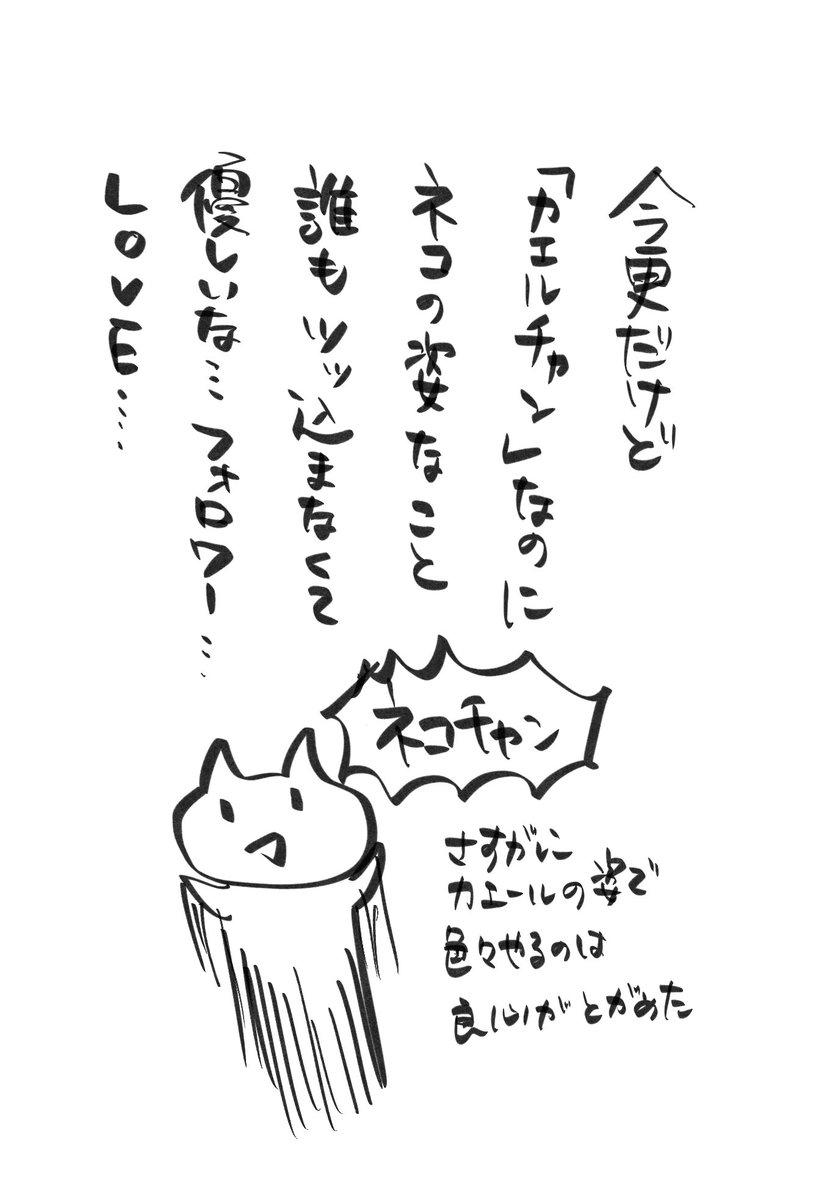 今更だけど
「カエルチャン」なのに
ネコの姿なこと
誰もツッ込まなくて
優しいな…フォロワー…
LOVE……
ネコチャン
さすがに
カエールの姿で
色々やるのは
良心がとがめた